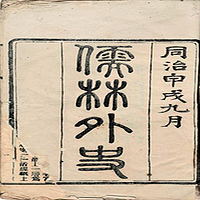 同治甲戌九月
儒林外史